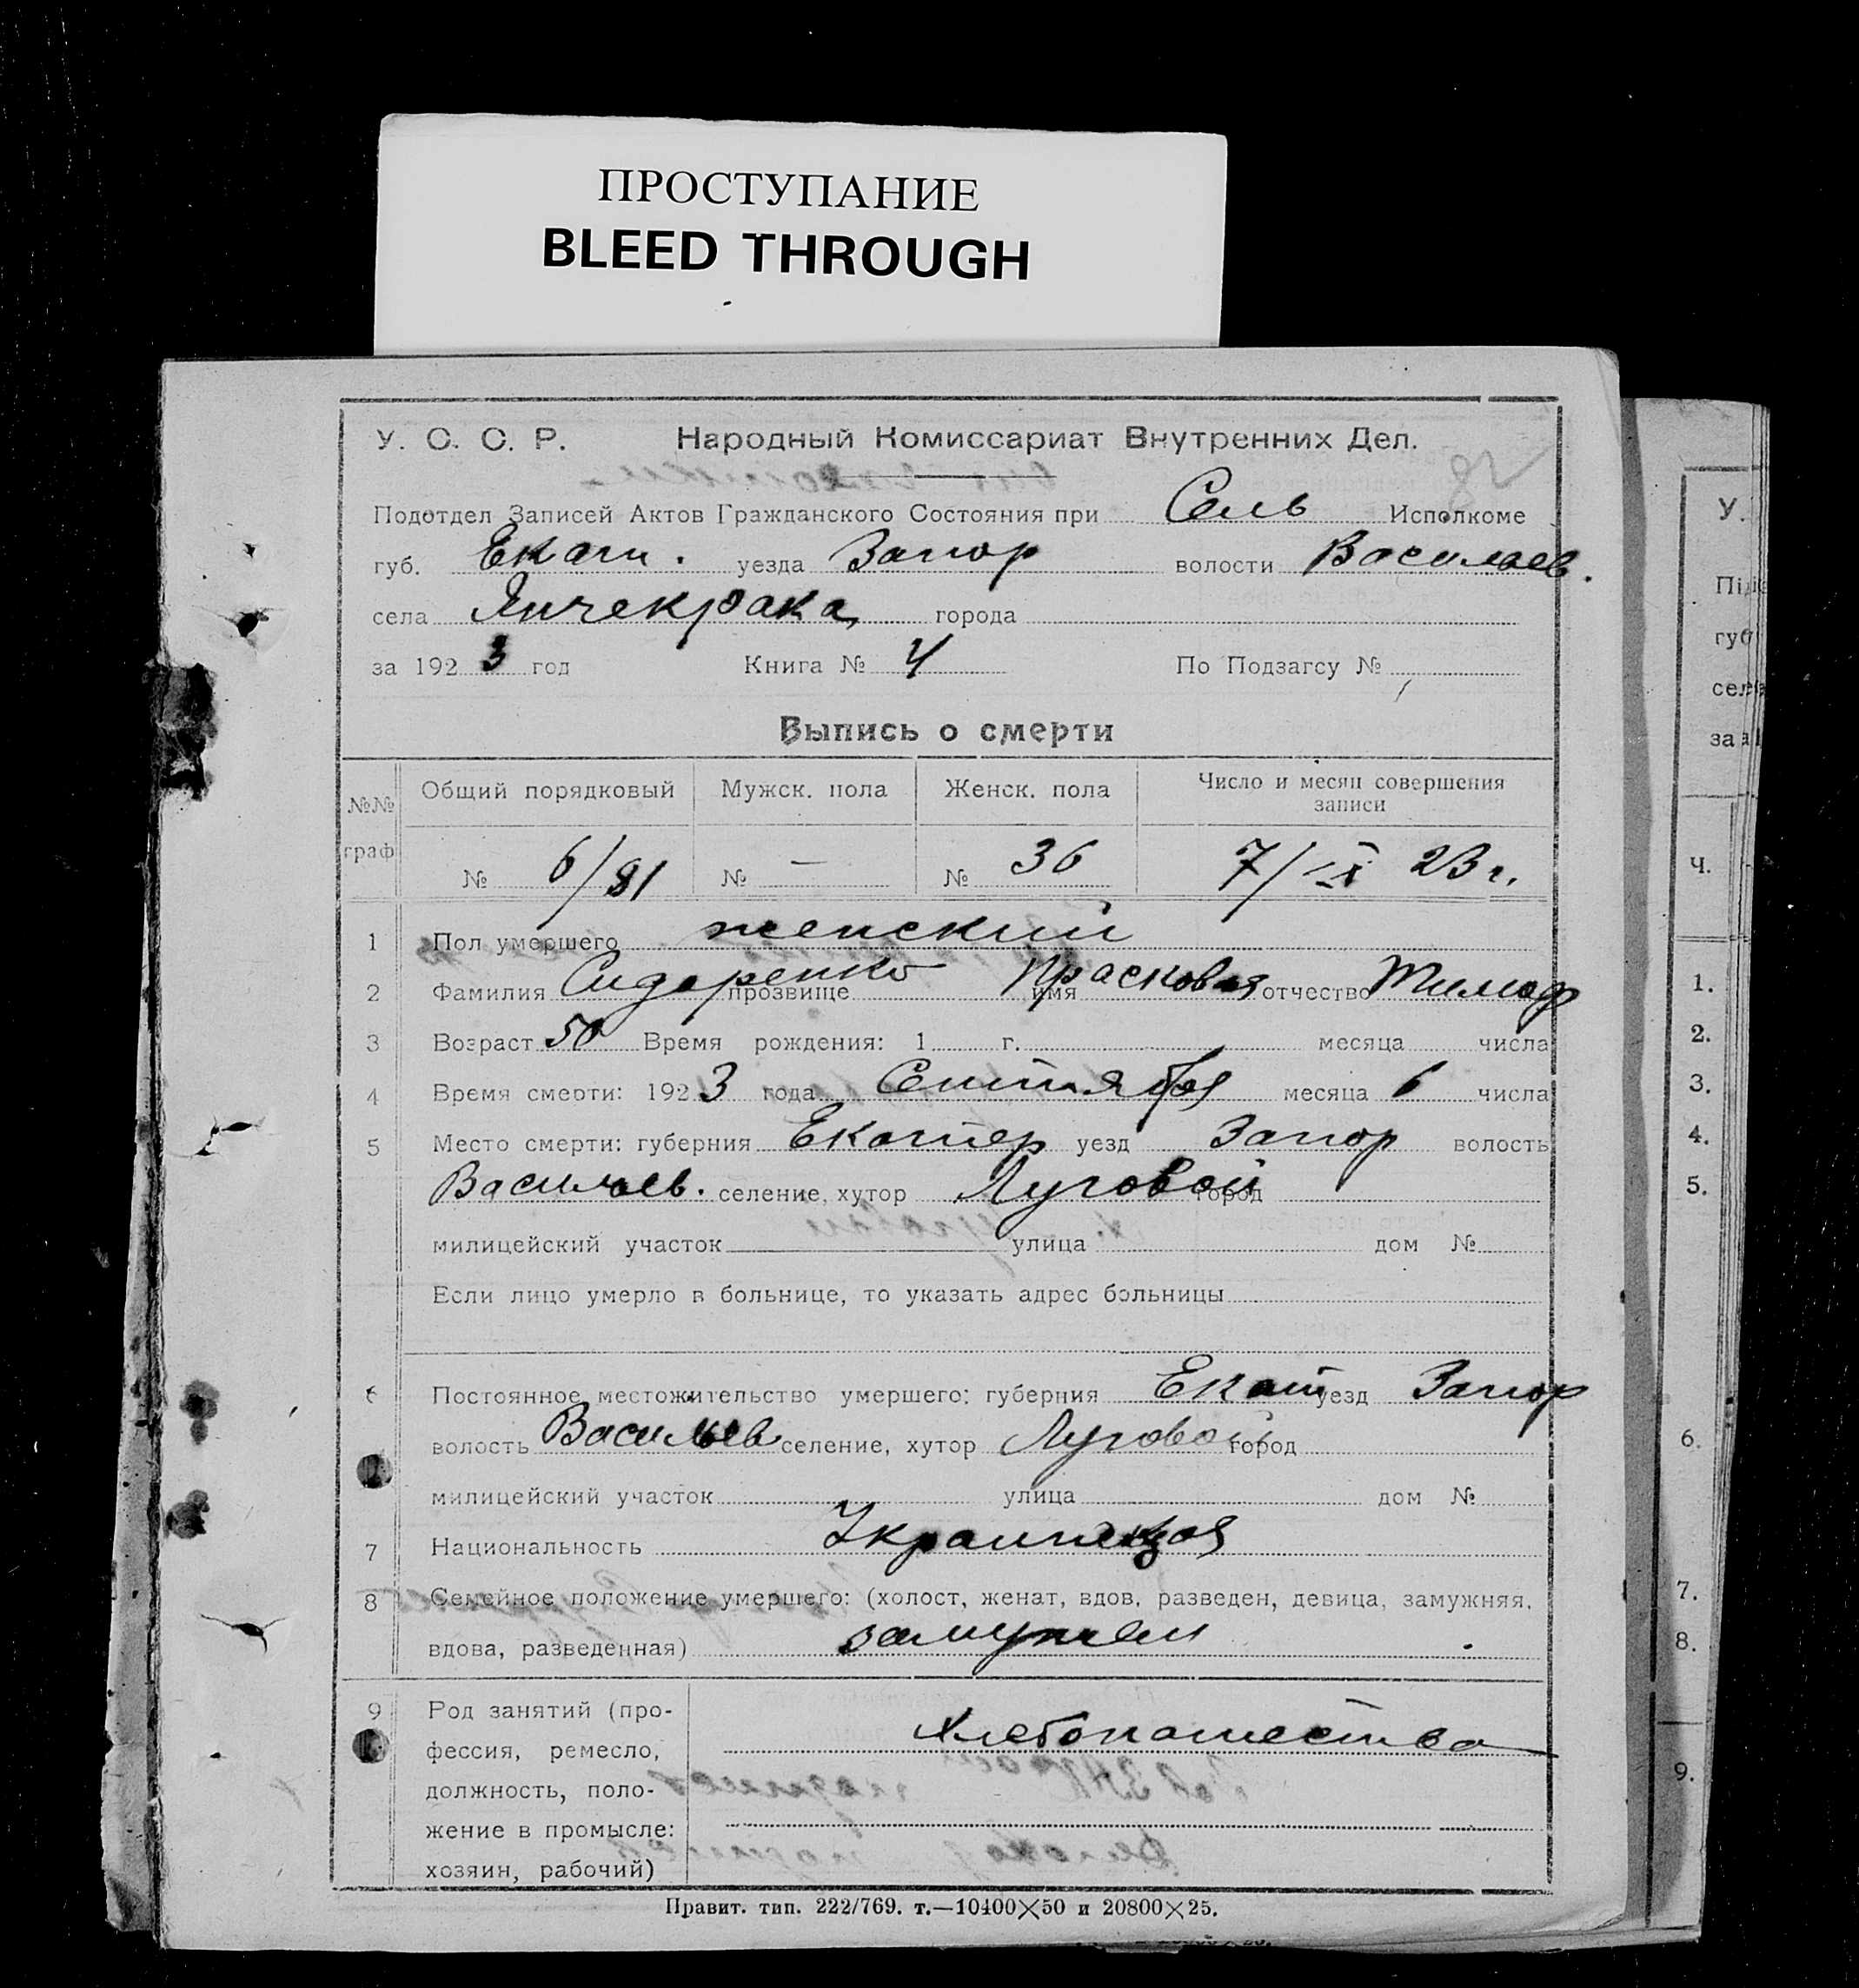 ПРОСТУПАНИЕ
BLEED THROUGH
У. С. С. Р. Народный Комиссариат Внутренних Дел.
Подотдел Записей Актов Гражданского Состояния при Сель Исполкоме
губ. Екат. уезда Запор волости Васильев.
села Янчекрака города
за 1923 год Книга № 4 По Подзагсу №
Выпись о смерти
№№ граф Общий порядковый Мужск. пола Женск. пола Число и месяц совершения записи
№ 6/81 № — № 36 7/IX 23 г.
1 Пол умершего женский
2 Фамилия Сидоренко прозвище имя Прасковья отчество Тимоф
3 Возраст 50 Время рождения: 1 г. месяца числа
4 Время смерти: 1923 года Сентября месяца 6 числа
5 Место смерти: губерния Екатер уезд Запор волость
Васильев. селение, хутор Луговой город
милицейский участок улица дом №
Если лицо умерло в больнице, то указать адрес больницы
6 Постоянное местожительство умершего: губерния Екат уезд Запор
волость Васильев селение, хутор Луговой город
милицейский участок улица дом №
7 Национальность
8 Семейное положение умершего: (холост, женат, вдов, разведен, девица, замужняя,
вдова, разведенная) замужем
9 Род занятий (про-
фессия, ремесло,
должность, поло-
жение в промысле:
хозяин, рабочий)
Хлебопашество
Правит. тип. 222/769. т.—10400×50 и 20800×25.
У.
Ч.
1.
2.
3.
4.
5.
6.
7.
8.
9.